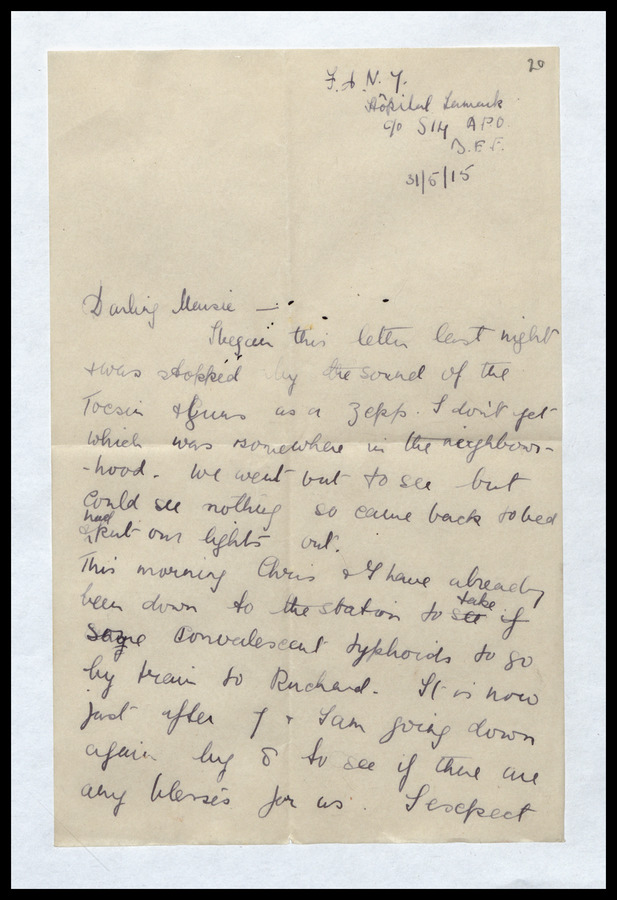 20
F.A.N.Y.
Hôpital Lamark
c/o S14 APO.
B.E.F.
31/5/15
Darling Mousie —
I began this letter last night
& was stopped by the sound of the
Tocsin & guns as a Zepp. I don't yet
which was somewhere in the neighbour-
-hood. We went out to see but
could see nothing so came back to bed
& had put our lights out.
This morning Chris & I have already
been down to the station to see take if
some convalescent typhoids to go
by train to Ruchard. It is now
just after 7 & I am going down
again by 8 to see if there are
any blessés for us. I expect